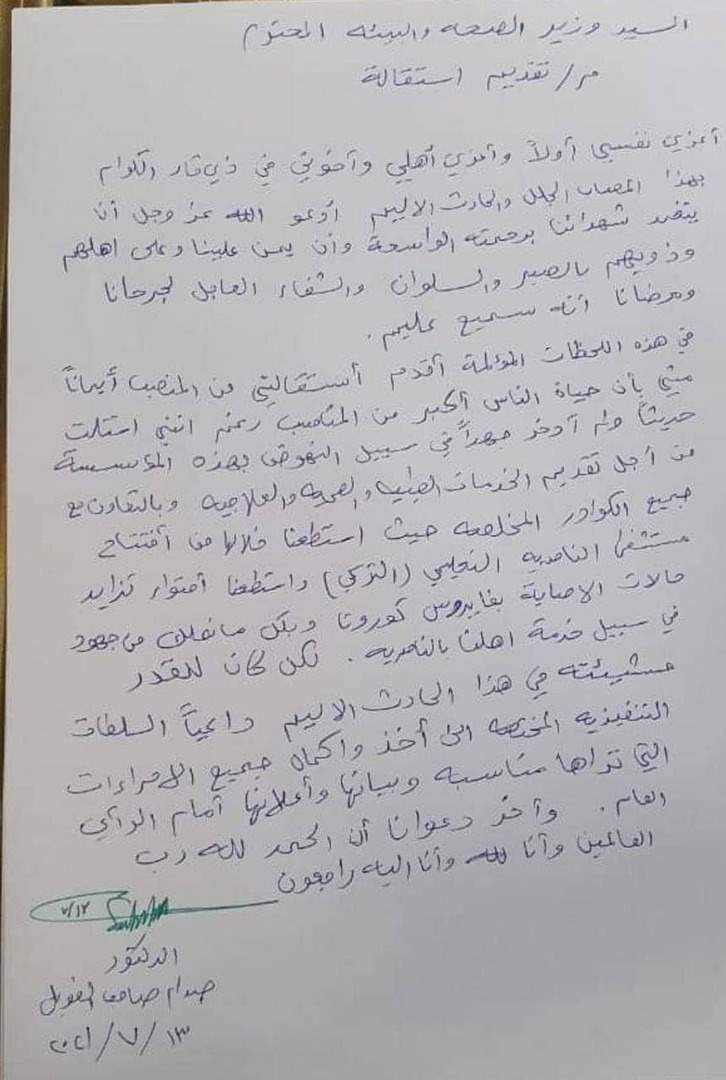 السيد وزير الصحه والبيئه المحترم
م/ تقديم استقالة
أعزي نفسي أولاً وأعزي أهلي وأخوتي في ذي قار الكرام
بهذا المصاب الجلل والحادث الاليم أدعو الله عز وجل أن
يتغمد شهدائنا برحمته الواسعة وأن يمن علينا وعلى اهلهم
وذويهم بالصبر والسلوان والشفاء العاجل لجرحانا
ومرضانا أنه سميع عليم.
في هذه اللحظات المؤلمة أقدم أستقالتي من المنصب أيماناً
مني بأن حياة الناس أكبر من المناصب رغم انني استلمت
حديثاً ولم أدخر جهداً في سبيل النهوض بهذه المؤسسة
من أجل تقديم الخدمات الطبيه والصحيه والعلاجيه وبالتعاون مع
جميع الكوادر المخلصه حيث استطعنا خلالها من أفتتاح
مستشفى الناصريه التعليمي (التركي) واستطعنا أحتواء تزايد
حالات الاصابة بفايروس كورونا وبكل مانملك من جهود
في سبيل خدمة اهلنا بالناصريه. لكن كان للقدر
مشيئته في هذا الحادث الاليم داعياً السلطات
التنفيذيه المختصه الى أخذ واكمال جميع الاجراءات
التي تراها مناسبه وبيانها وأعلانها أمام الرأي
العام. وأخر دعوانا أن الحمد لله رب
العالمين وأنا لله وأنا اليه راجعون
٧/١٣
الدكتور
صدام صاحب الطويل
١٣/٧/٢٠٢١